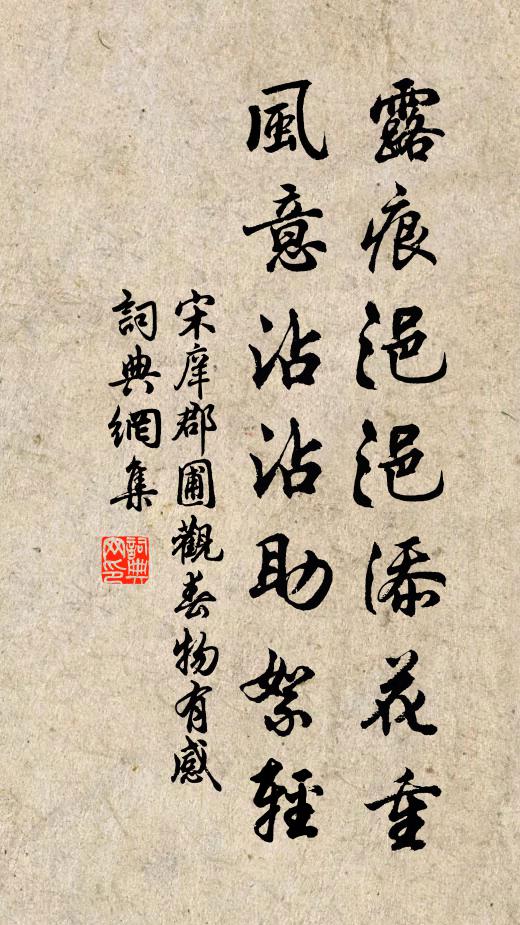 露痕浥浥添花重
風意沾沾助絮輕
宋庠郡圃觀春物有感
詞典網集
詞典網印